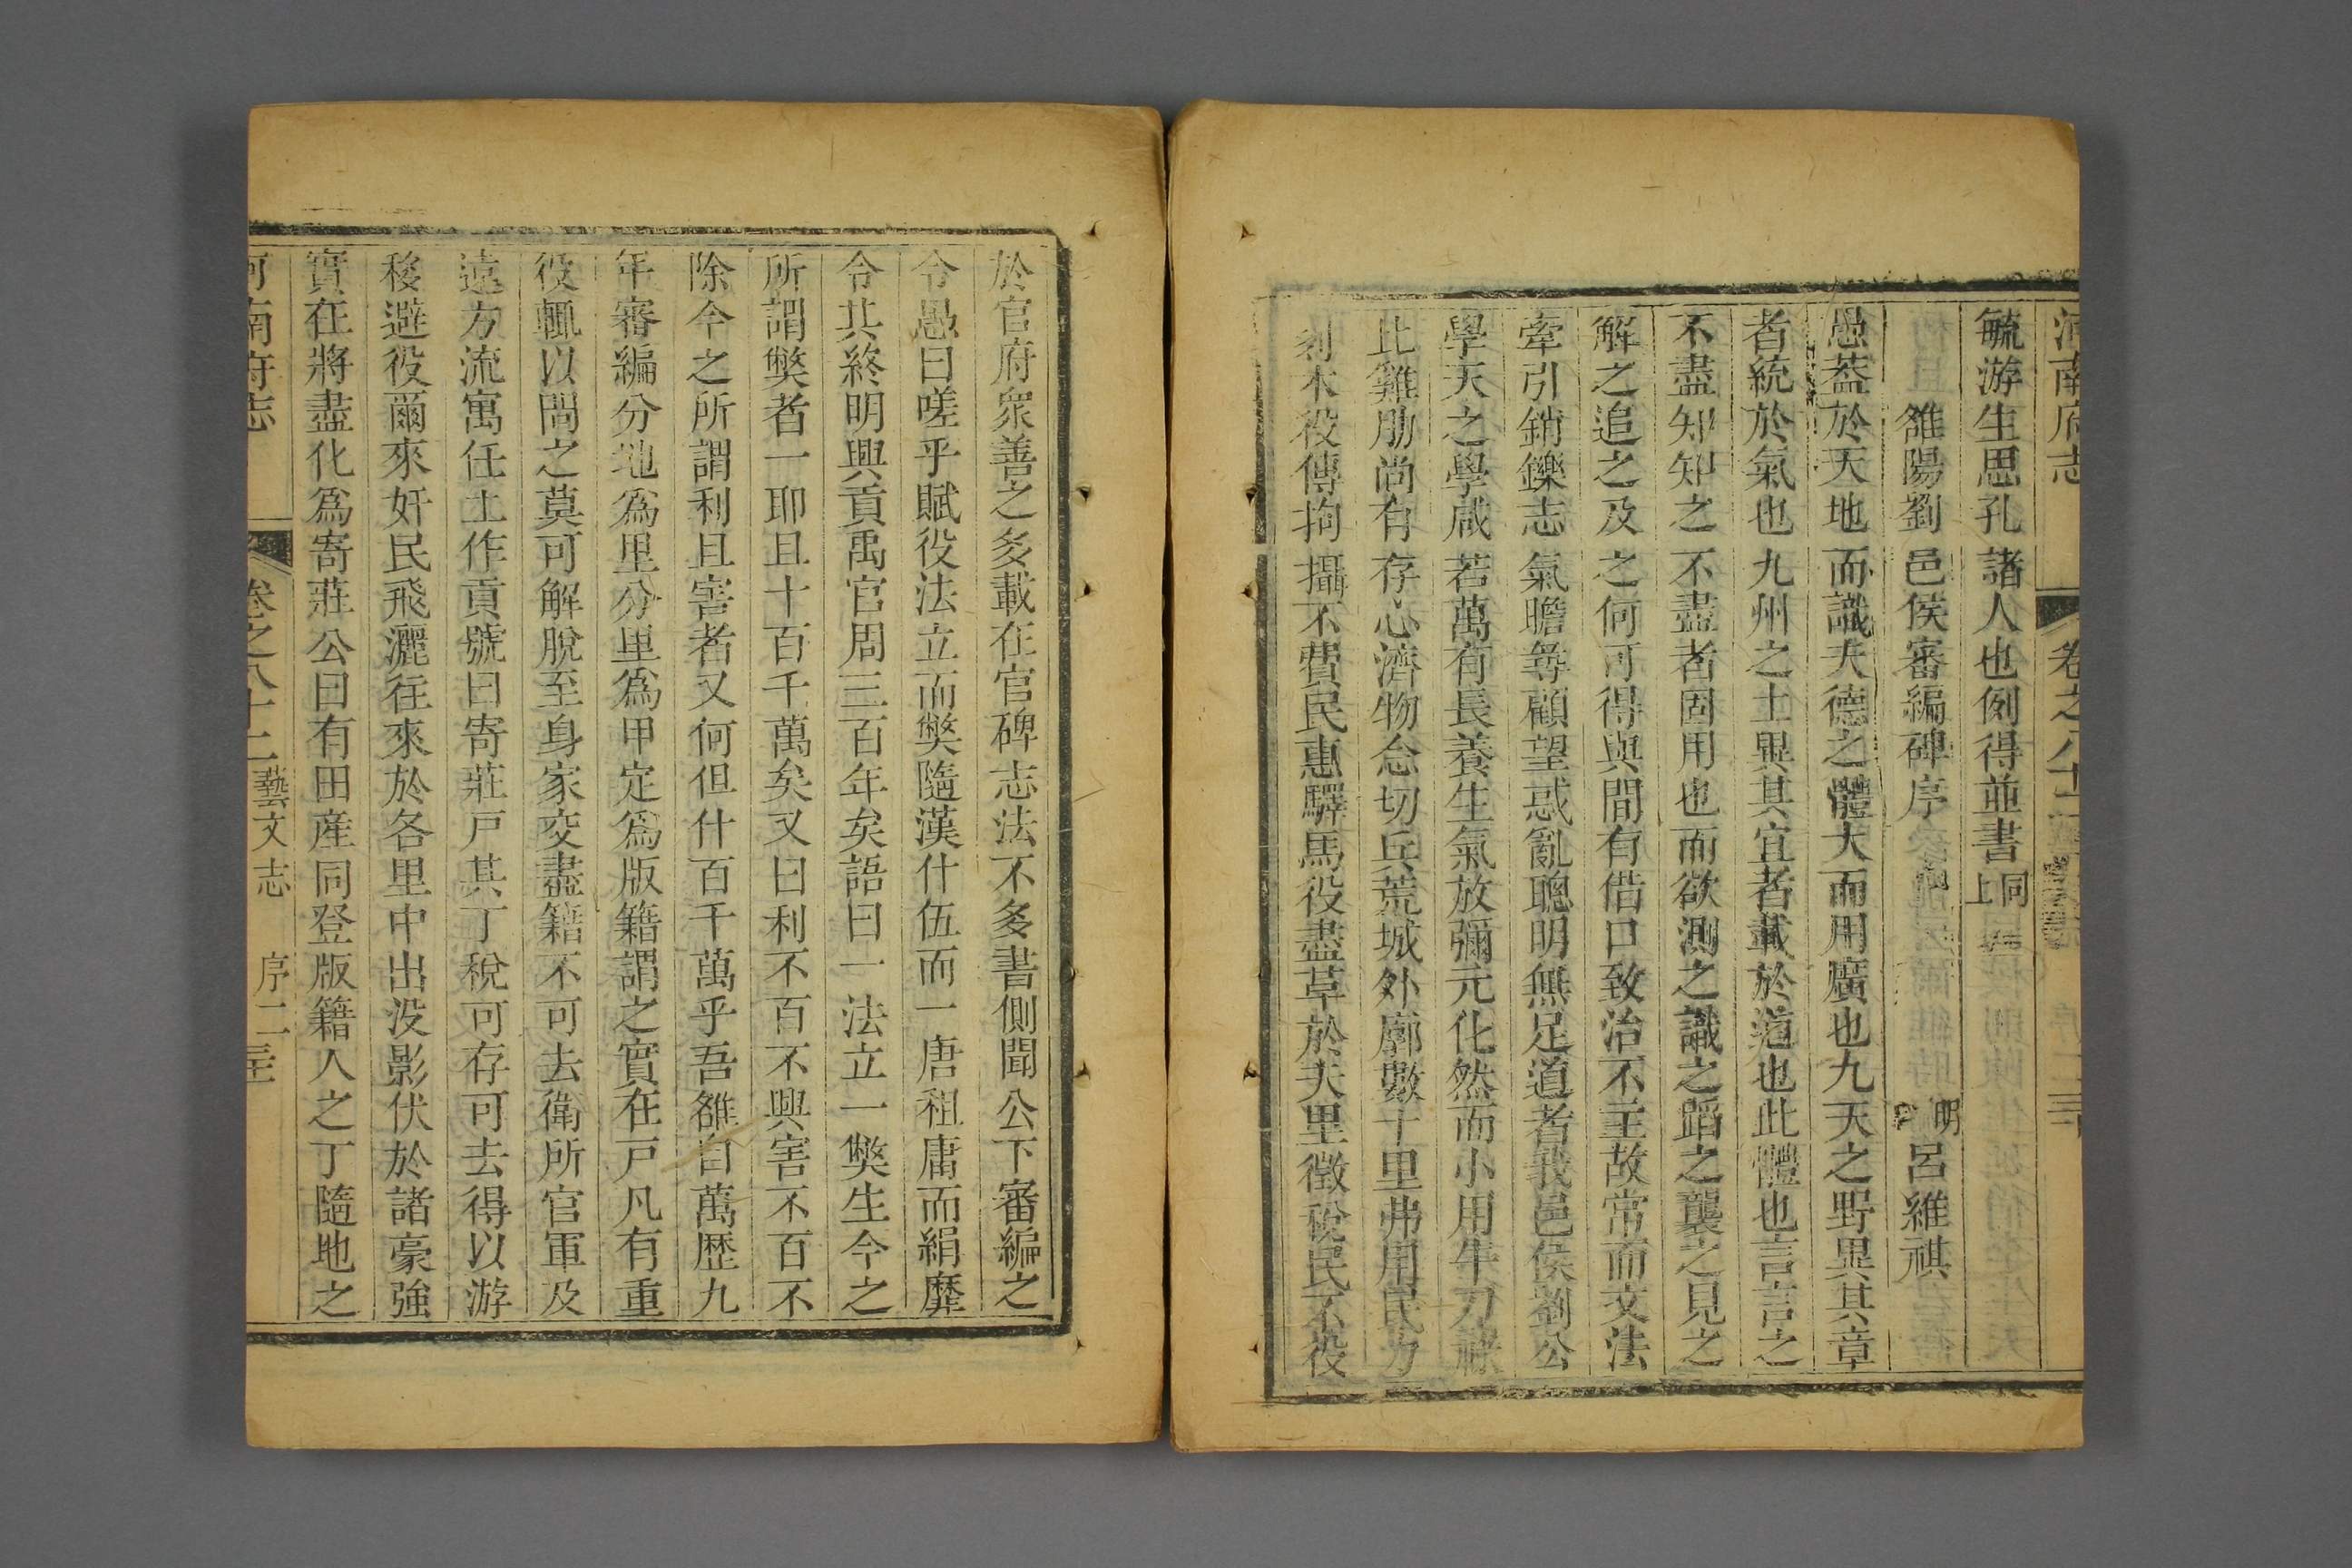 河南府志 卷之八十二
毓游生思孔諸人也例得並書同上
雒陽劉邑侯審編碑序 明呂維祺
愚葢於天地而識夫德之體大而用廣也九天之野異其章
者統於氣也九州之土異其宜者載於道也此體也言言之
不盡知知之不盡者固用也而欲測之識之蹈之襲之見之
解之追之及之何可得與間有借口致治不主故常而文法
牽引銷鑠志氣瞻顧望惑亂聰明無足道者我邑侯劉公
學天之學咸若萬有長養生氣放彌元化然而小用牛刀
比雞肋尚有存心濟物念切丘荒城外廓數十里弗用民力
役傳拘攝不費民惠驛馬役盡草於夫里徵稅民不役
於官府衆善之多載在官碑志法不多書側聞公下審編之
令愚曰嗟乎賦役法立而獘隨漢什伍而一唐祖庸而絹縻
令其終明興貢禹官周三百年矣語曰一法立一獘生今之
所謂獘者一耶且十百千萬矣又曰利不百不興害不百不
除今之所謂利且害者又何但什百千萬乎吾雒自萬歷九
年審編分地爲里分里爲甲定爲版籍謂之實在戸凡有重
役輒以閭之莫可解脫至身家交盡籍不可去衛所官軍及
遠方流寓任土作貢號曰寄莊戸其丁稅可存可去得以游
移避役爾來奸民飛灑往來於各里中出没影伏於諸豪強
實在將盡化爲寄莊公曰有田産同登版籍人之丁隨地之
河南府志 卷之八十二 藝文志 序二